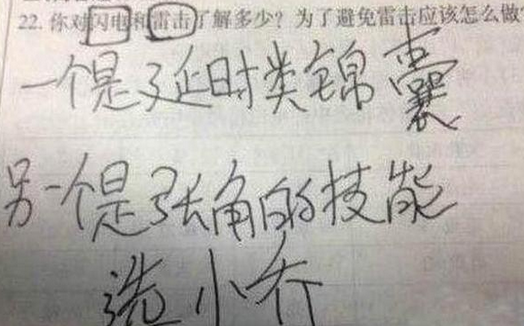 22. 你对闪电和雷击了解多少？为了避免雷击应该怎么做？
一个是延时类锦囊
另一个是张角的技能
选小乔